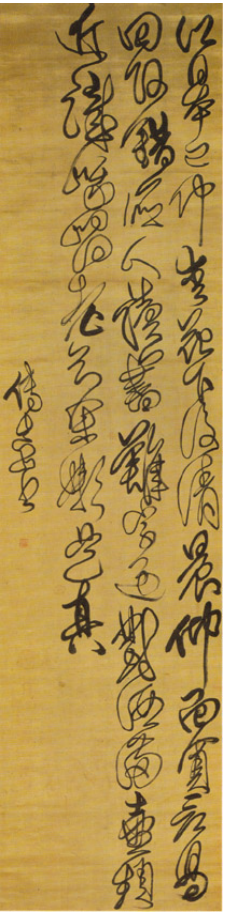 江皋已仲春花下復清晨仰面貪看鳥
回頭錯應人讀書難字過對酒滿壺頻
近識峨嵋老知余嬾是真
傅山書